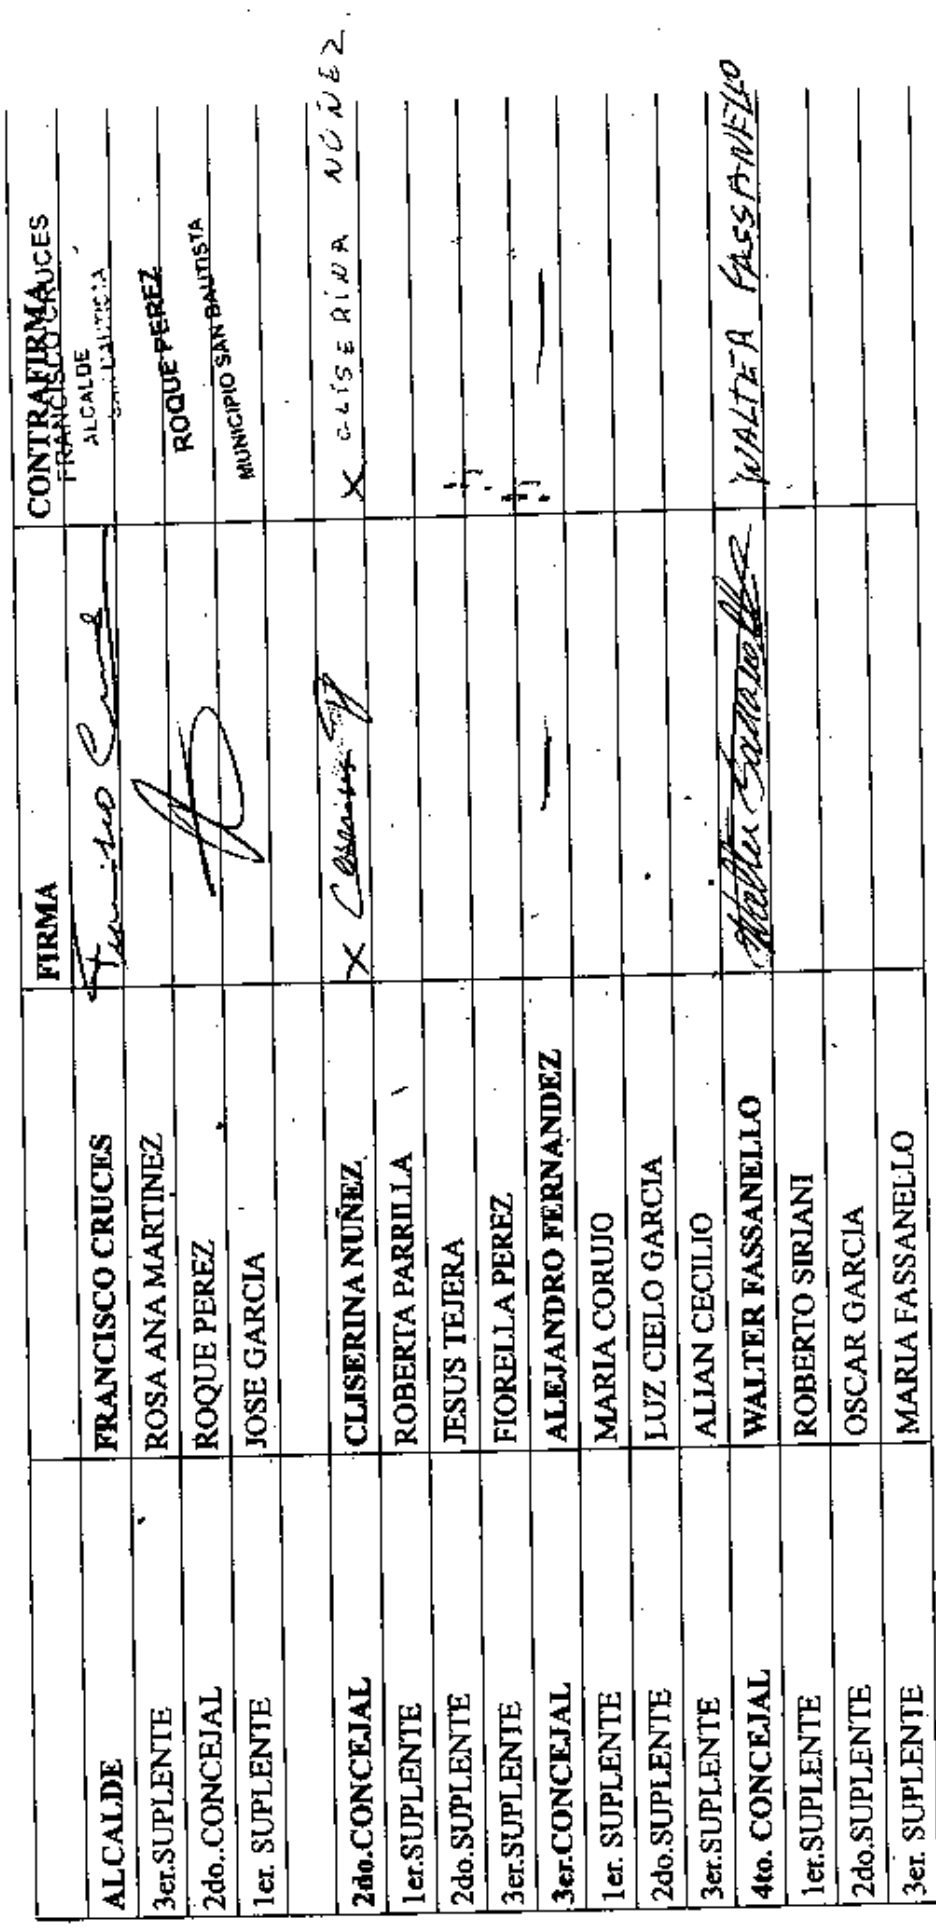 FIRMA CONTRAFIRMA
ALCALDE FRANCISCO CRUCES FRANCISCO CRUCES
ALCALDE
3er.SUPLENTE ROSA ANA MARTINEZ
2do..CONCEJAL ROQUE PEREZ ROQUE PEREZ
1er. SUPLENTE JOSE GARCIA MUNICIPIO SAN BAUTISTA
2do.CONCEJAL CLISERINA NUÑEZ X X CLISERINA NÚÑEZ
1er.SUPLENTE ROBERTA PARRILLA
2do.SUPLENTE JESUS TEJERA
3er.SUPLENTE FIORELLA PEREZ
3er.CONCEJAL ALEJANDRO FERNANDEZ
1er. SUPLENTE MARIA CORUJO
2do.SUPLENTE LUZ CIELO GARCIA
3er.SUPLENTE ALIAN CECILIO
4to. CONCEJAL WALTER FASSANELLO Walter Fassanello WALTER FASSANELLO
1er.SUPLENTE ROBERTO SIRIANI
2do.SUPLENTE OSCAR GARCIA
3er. SUPLENTE MARIA FASSANELLO